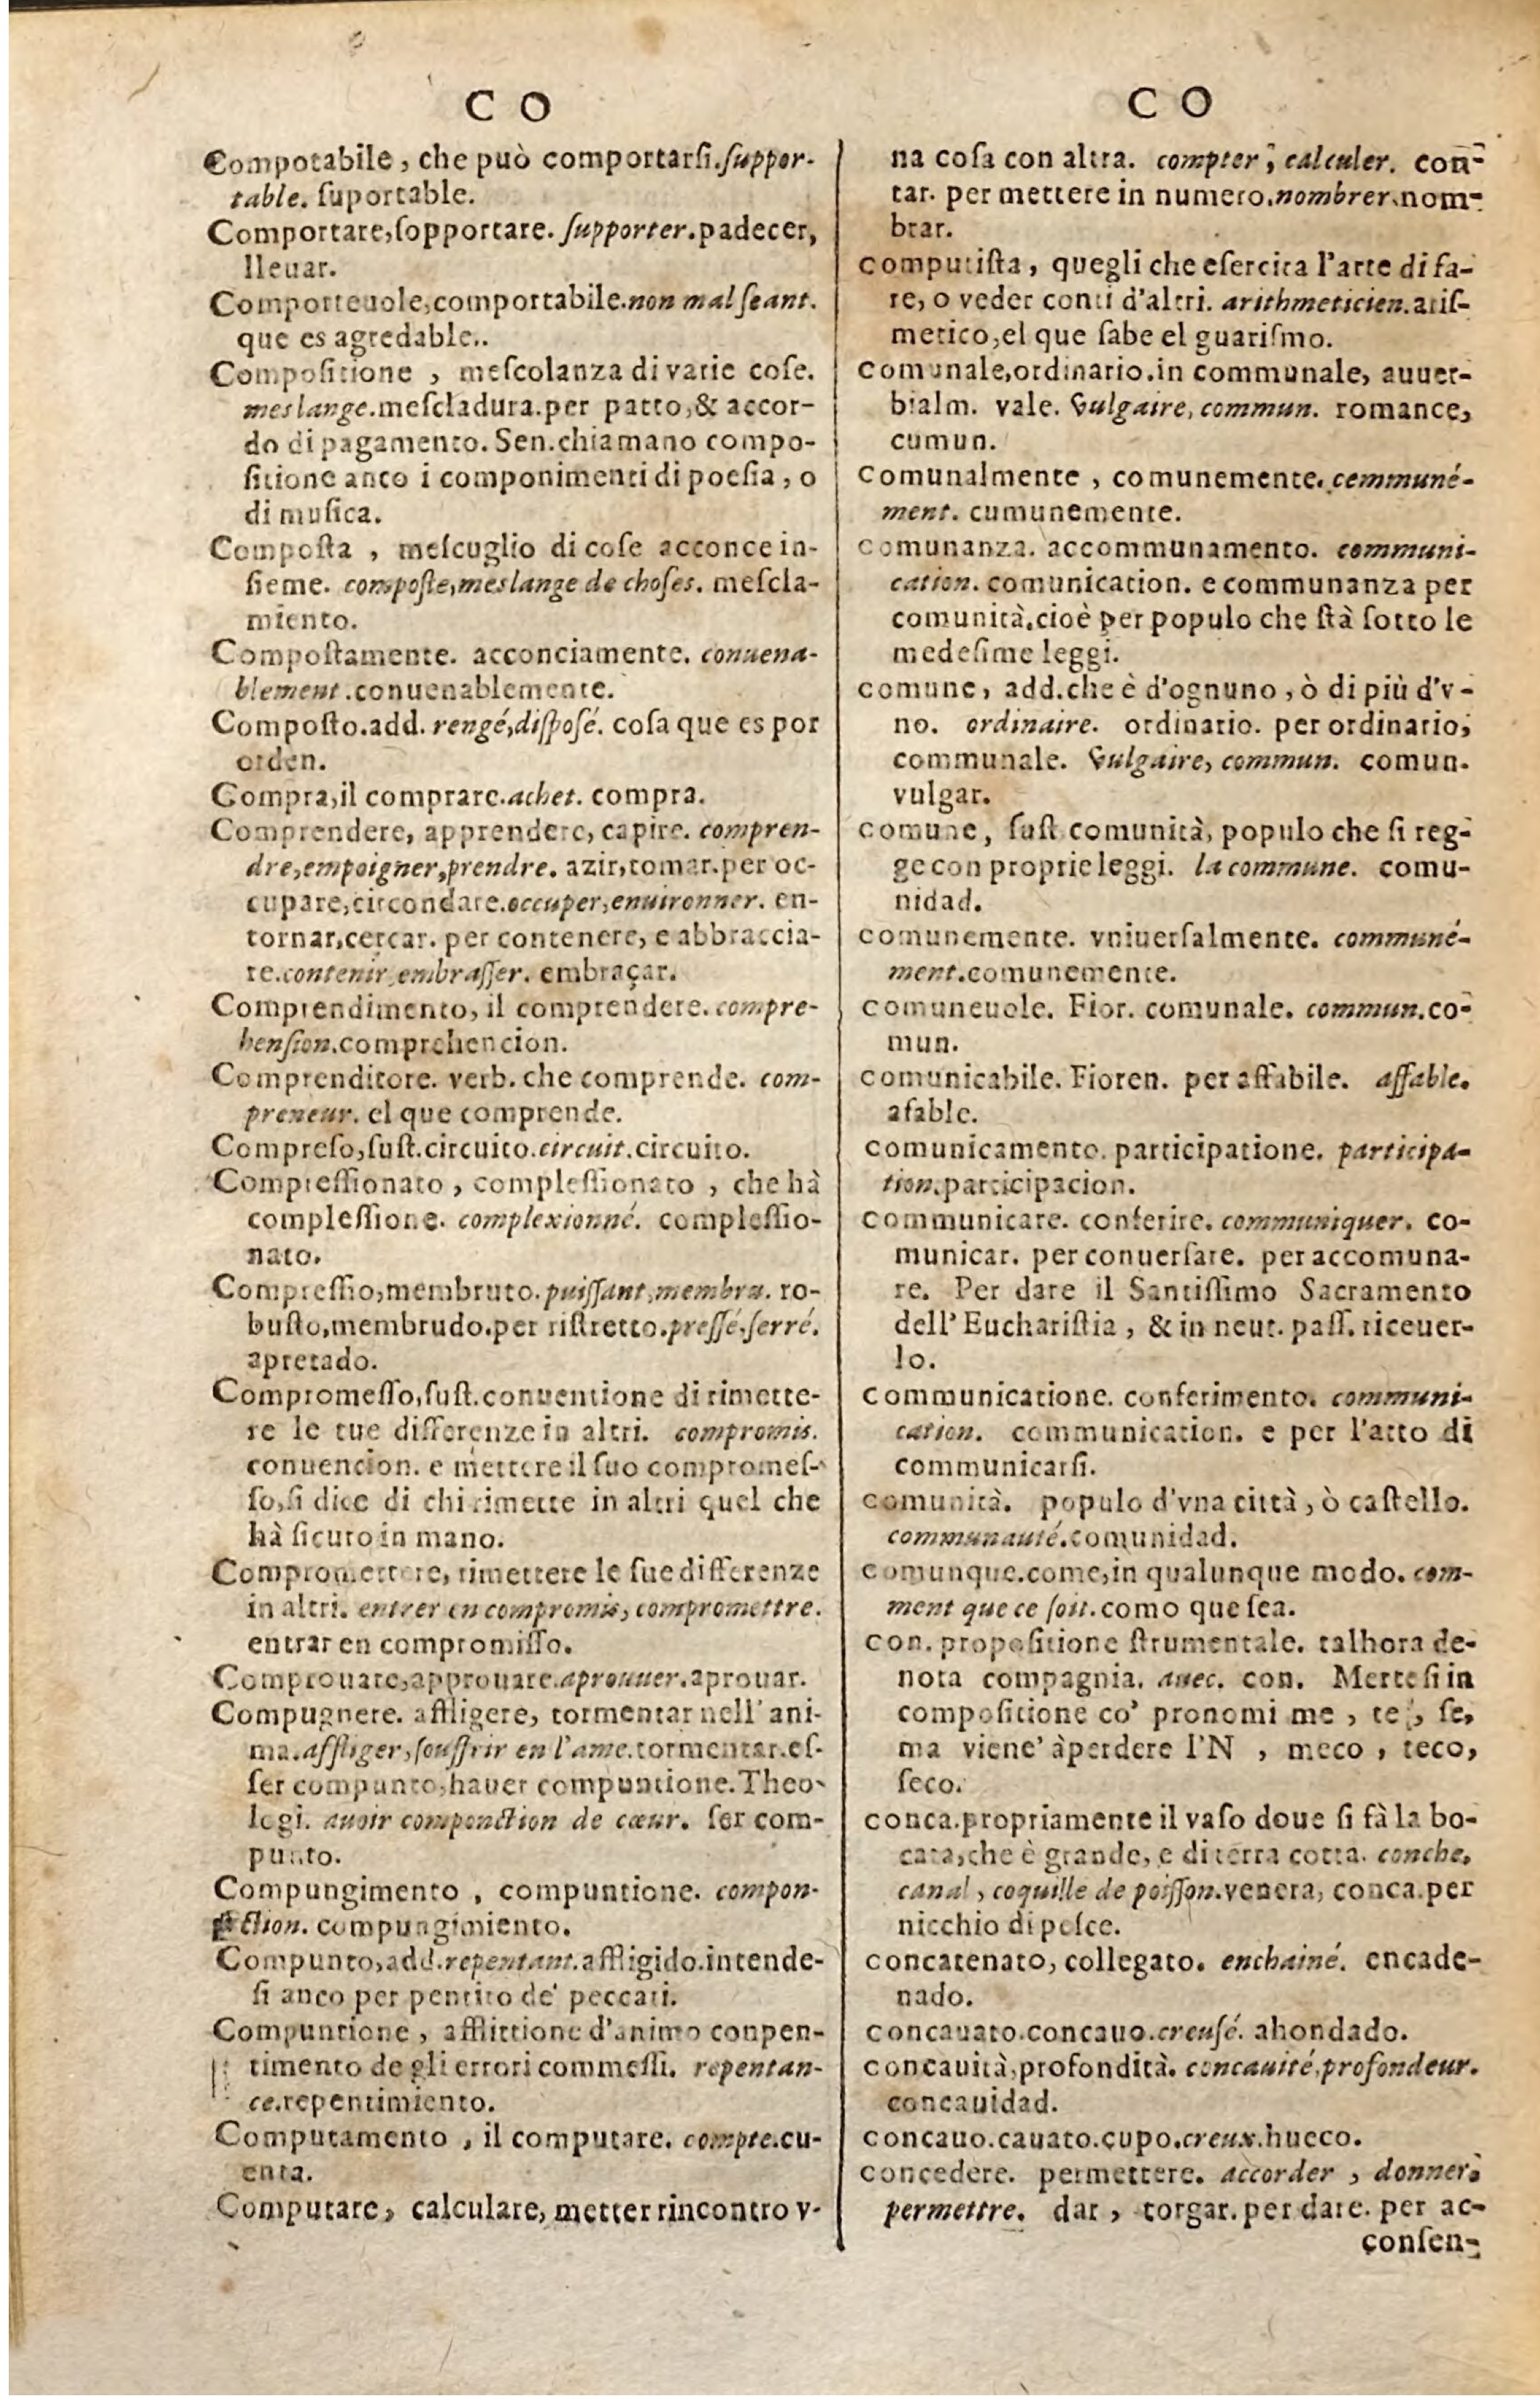 C O
Compotabile, che può comportarſi.ſuppor-
table. ſuportable.
Comportare,ſopportare. ſupporter.padecer,
lleuar.
Comporteuole,comportabile.non mal ſeant.
que es agredable..
Compoſitione , meſcolanza di varie coſe.
meslange.meſcladura.per patto,& accor-
do di pagamento. Sen.chiamano compo-
ſitione anco i componimenti di poeſia , o
di muſica.
Compoſta , meſcuglio di coſe acconce in-
ſieme. compoſte,meslange de choſes. meſcla-
miento.
Compoſtamente. acconciamente. conuena-
blement.conuenablemente.
Compoſto.add. rengé,diſpoſé. coſa que es por
orden.
Compra,il comprare.achet. compra.
Comprendere, apprendere, capire. compren-
dre,empoigner,prendre. azir,tomar.per oc-
cupare,circondare.occuper,enuironner. en-
tornar,cerçar. per contenere, e abbraccia-
re.contenir,embraſſer. embraçar.
Comprendimento, il comprendere. compre-
henſion.comprehencion.
Comprenditore. verb. che comprende. com-
preneur. el que comprende.
Compreſo,ſuſt.circuito.circuit.circuito.
Compreſſionato , compleſſionato , che hà
compleſſione. complexionné. compleſſio-
nato.
Compreſſio,membruto.puiſſant,membru. ro-
buſto,membrudo.per riſtretto.preſſé,ſerré.
apretado.
Compromeſſo,ſuſt.conuentione di rimette-
re le tue differenze in altri. compromis.
conuencion. e mettere il ſuo compromeſ-
ſo,ſi dice di chi rimette in altri quel che
hà ſicuro in mano.
Compromettere, rimettere le ſue differenze
in altri. entrer en compromis, compromettre.
entrar en compromiſſo.
Comprouare,approuare.aprouuer.aprouar.
Compugnere. affligere, tormentar nell' ani-
ma.affliger,ſouffrir en l'ame.tormentar.eſ-
ſer compunto,hauer compuntione.Theo-
logi. auoir componction de cœur. ſer com-
punto.
Compungimento , compuntione. compon-
ction. compungimiento.
Compunto,add.repentant.affligido.intende-
ſi anco per pentito de' peccati.
Compuntione , afflittione d'animo conpen-
timento de gli errori commeſſi. repentan-
ce.repentimiento.
Computamento , il computare. compte.cu-
enta.
Computare, calculare, metter rincontro v-
C O
na coſa con altra. compter, calculer. con-
tar. per mettere in numero.nombrer.nom-
brar.
computiſta , quegli che eſercita l'arte di fa-
re, o veder conti d'altri. arithmeticien.ariſ-
metico,el que ſabe el guariſmo.
comunale,ordinario.in communale, auuer-
bialm. vale. Vulgaire, commun. romance,
cumun.
comunalmente , comunemente. cemmuné-
ment. cumunemente.
comunanza. accommunamento. communi-
cation. comunication. e communanza per
comunità.cioè per populo che ſtà ſotto le
medeſime leggi.
comune, add.che è d'ognuno , ò di più d'v-
no. ordinaire. ordinario. per ordinario,
communale. Vulgaire, commun. comun.
vulgar.
comune, ſuſt comunità, populo che ſi reg-
ge con proprie leggi. la commune. comu-
nidad.
comunemente. vniuerſalmente. communé-
ment.comunemente.
comuneuole. Fior. comunale. commun.co-
mun.
comunicabile. Fioren. per affabile. affable.
afable.
comunicamento. participatione. participa-
tion.participacion.
communicare. conferire. communiquer. co-
municar. per conuerſare. per accomuna-
re. Per dare il Santiſſimo Sacramento
dell' Euchariſtia , & in neut. paſſ. riceuer-
lo.
communicatione. conferimento. communi-
cation. communication. e per l'atto di
communicarſi.
comunità. populo d'vna città , ò caſtello.
communauté.comunidad.
comunque.come,in qualunque modo. com-
ment que ce ſoit. como que ſea.
con. propoſitione ſtrumentale. talhora de-
nota compagnia. auec. con. Metteſi in
compoſitione co' pronomi me , te , ſe,
ma viene' àperdere l'N , meco , teco,
ſeco.
conca.propriamente il vaſo doue ſi fà la bo-
cata,che è grande, e di terra cotta. conche,
canal , coquille de poiſſon.venera, conca.per
nicchio di peſce.
concatenato, collegato. enchainé. encade-
nado.
concauato.concauo.creuſé. ahondado.
concauità,profondità. concauité,profondeur.
concauidad.
concauo.cauato.cupo.creux.hueco.
concedere. permettere. accorder , donner,
permettre. dar , torgar. per dare. per ac-
conſen-